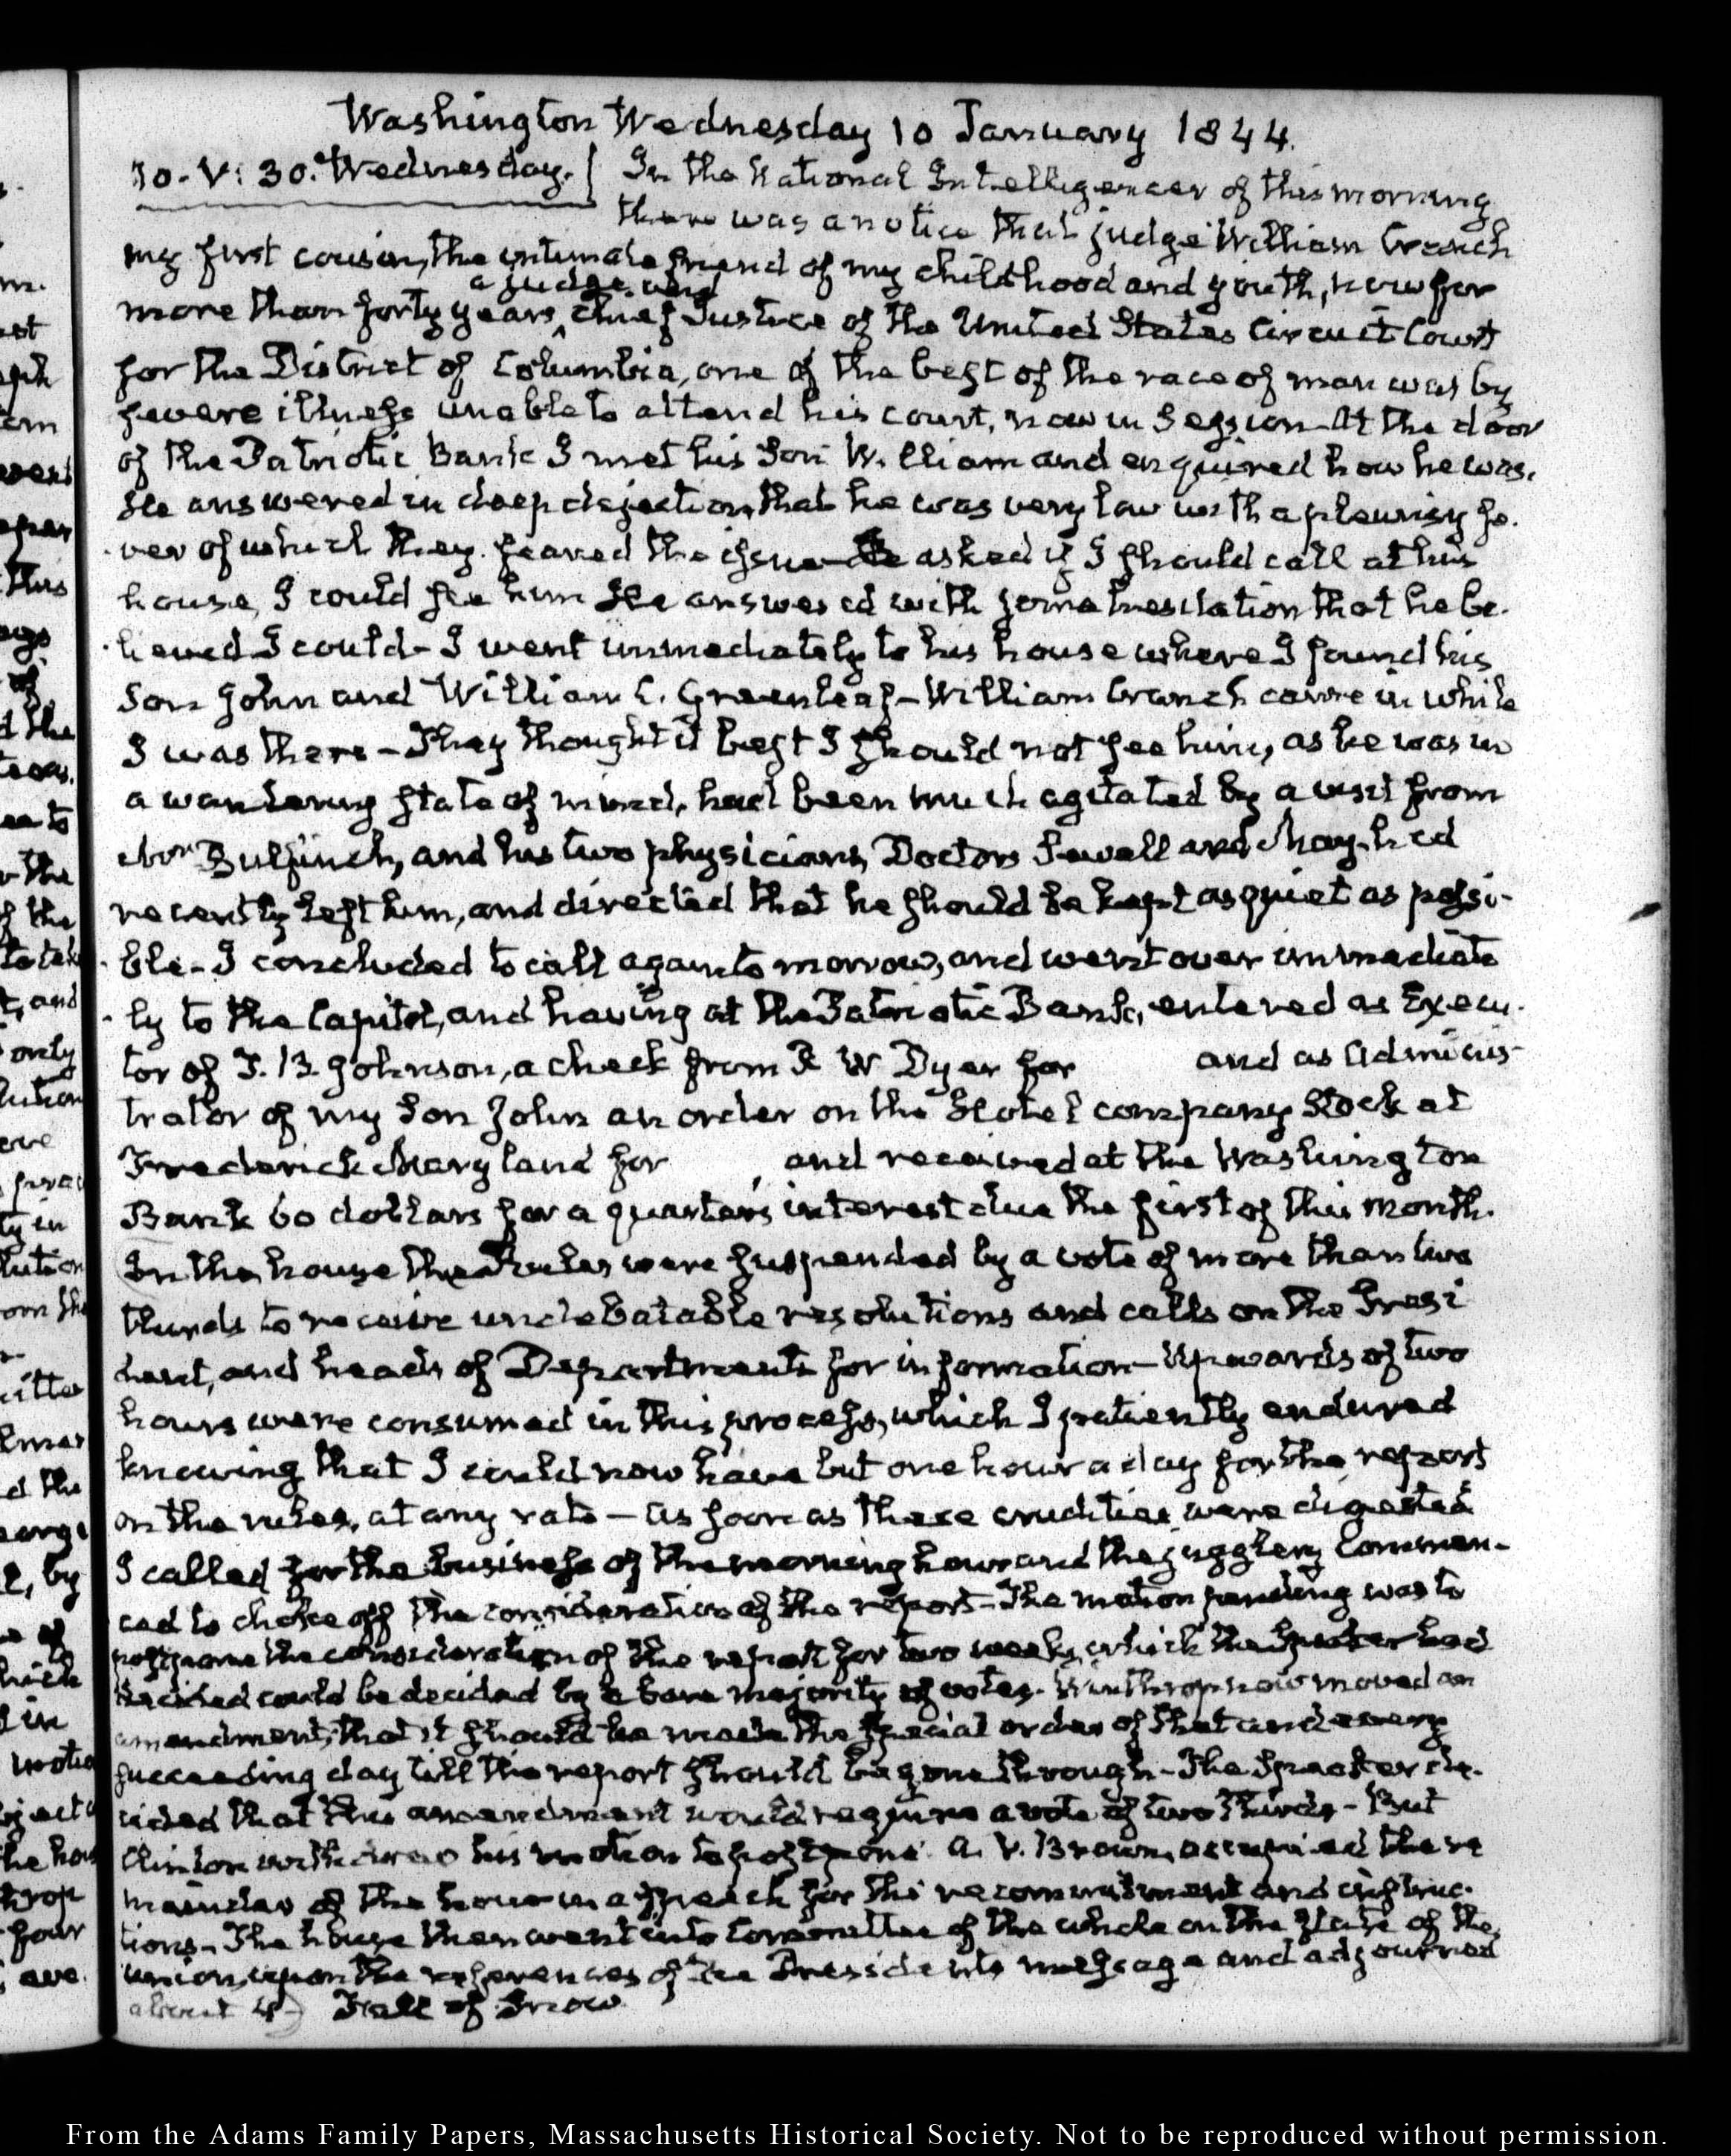 Washington Wednesday 10 January 1844.
10. V: 30. Wednesday. In the National Intelligencer of this morning
there was a notice that judge William Cranch
my first cousin, the intimate friend of my childhood and youth, now for
a judge and
more than forty years, chief Justice of the United States Circuit Court
for the District of Columbia, one of the best of the race of man was by
severe illness unable to attend his court, now in Session At the door
of the Patriotic Bank I met his Son William and enquired how he was.
He answered in deep dejection, that he was very low with a pleurisy fe-
ver of which they feared the issue asked if I should call at his
house, I could see him He answered with some hesitation that he be-
lieved I could- I went immediately to his house where I found his
Son John and William C. Greenleaf- William Cranch came in while
I was there- They thought it best I should not see him, as he was in
a wandering state of mind, had been much agitated by a visit from
Bulfinch, and his two physicians, Doctors Sewall and May had
recently left him, and directed that he should be kept as quiet as possi-
ble- I concluded to call again to morrow, and went over immediate
ly to the Capitol, and having at the Patriotic Bank, entered as Execu-
tor of T. B. Johnson, a check from W Dyer for and as Adminis-
trator of my Son John an order on the Hotel company Stock at
Frederick Maryland for and received at the Washington
Bank 60 dollars for a quarter's interest due the first of this month.
In the house the Rules were suspended by a vote of more than two
thirds to receive undebatable resolutions and calls on the Presi
dent, and heads of Departments for information- Upwards of two
hours were consumed in this process, which I patiently endured
knowing that I could now have but one hour a day for the report
on the rules, at any rate- As soon as these crudities were digested
I called for the business of the morning hour and the jugglery commen-
ced to choke off the consideration of the report- The motion pending was to
postpone the consideration of the report for two weeks, which the Speaker had
decided could be decided by a bare majority of votes. Winthrop now moved an
amendment, that it should be made the special order of that and every
succeeding day till the report should be gone through- The Speaker de-
cided that this amendment would require a vote of two thirds- But
Clinton withdrew his motion to postpone. A. V. Brown, occupied the re
mainder of the hour in a speech for the recommitment and instruc-
tions- The house then went into Committee of the whole on the State of the
union, upon the references of the Presidents message and adjourned
about 4. Fall of Snow
From the Adams Family Papers, Massachusetts Historical Society. Not to be reproduced without permission.